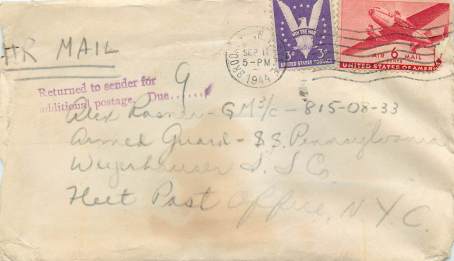 AIR MAIL
SEP 1
5-PM
1944
WIN THE WAR
3¢ 3¢
UNITED STATES POSTAGE
6¢
AIR MAIL
UNITED STATES OF AMERICA
Returned to sender for
additional postage. Due......
9
Alex Rosner - GM 3/c - 815-08-33
Armed Guard - S.S. Pennsylvania
Weyerhauser S. S. Co
Fleet Post Office, N.Y.C.